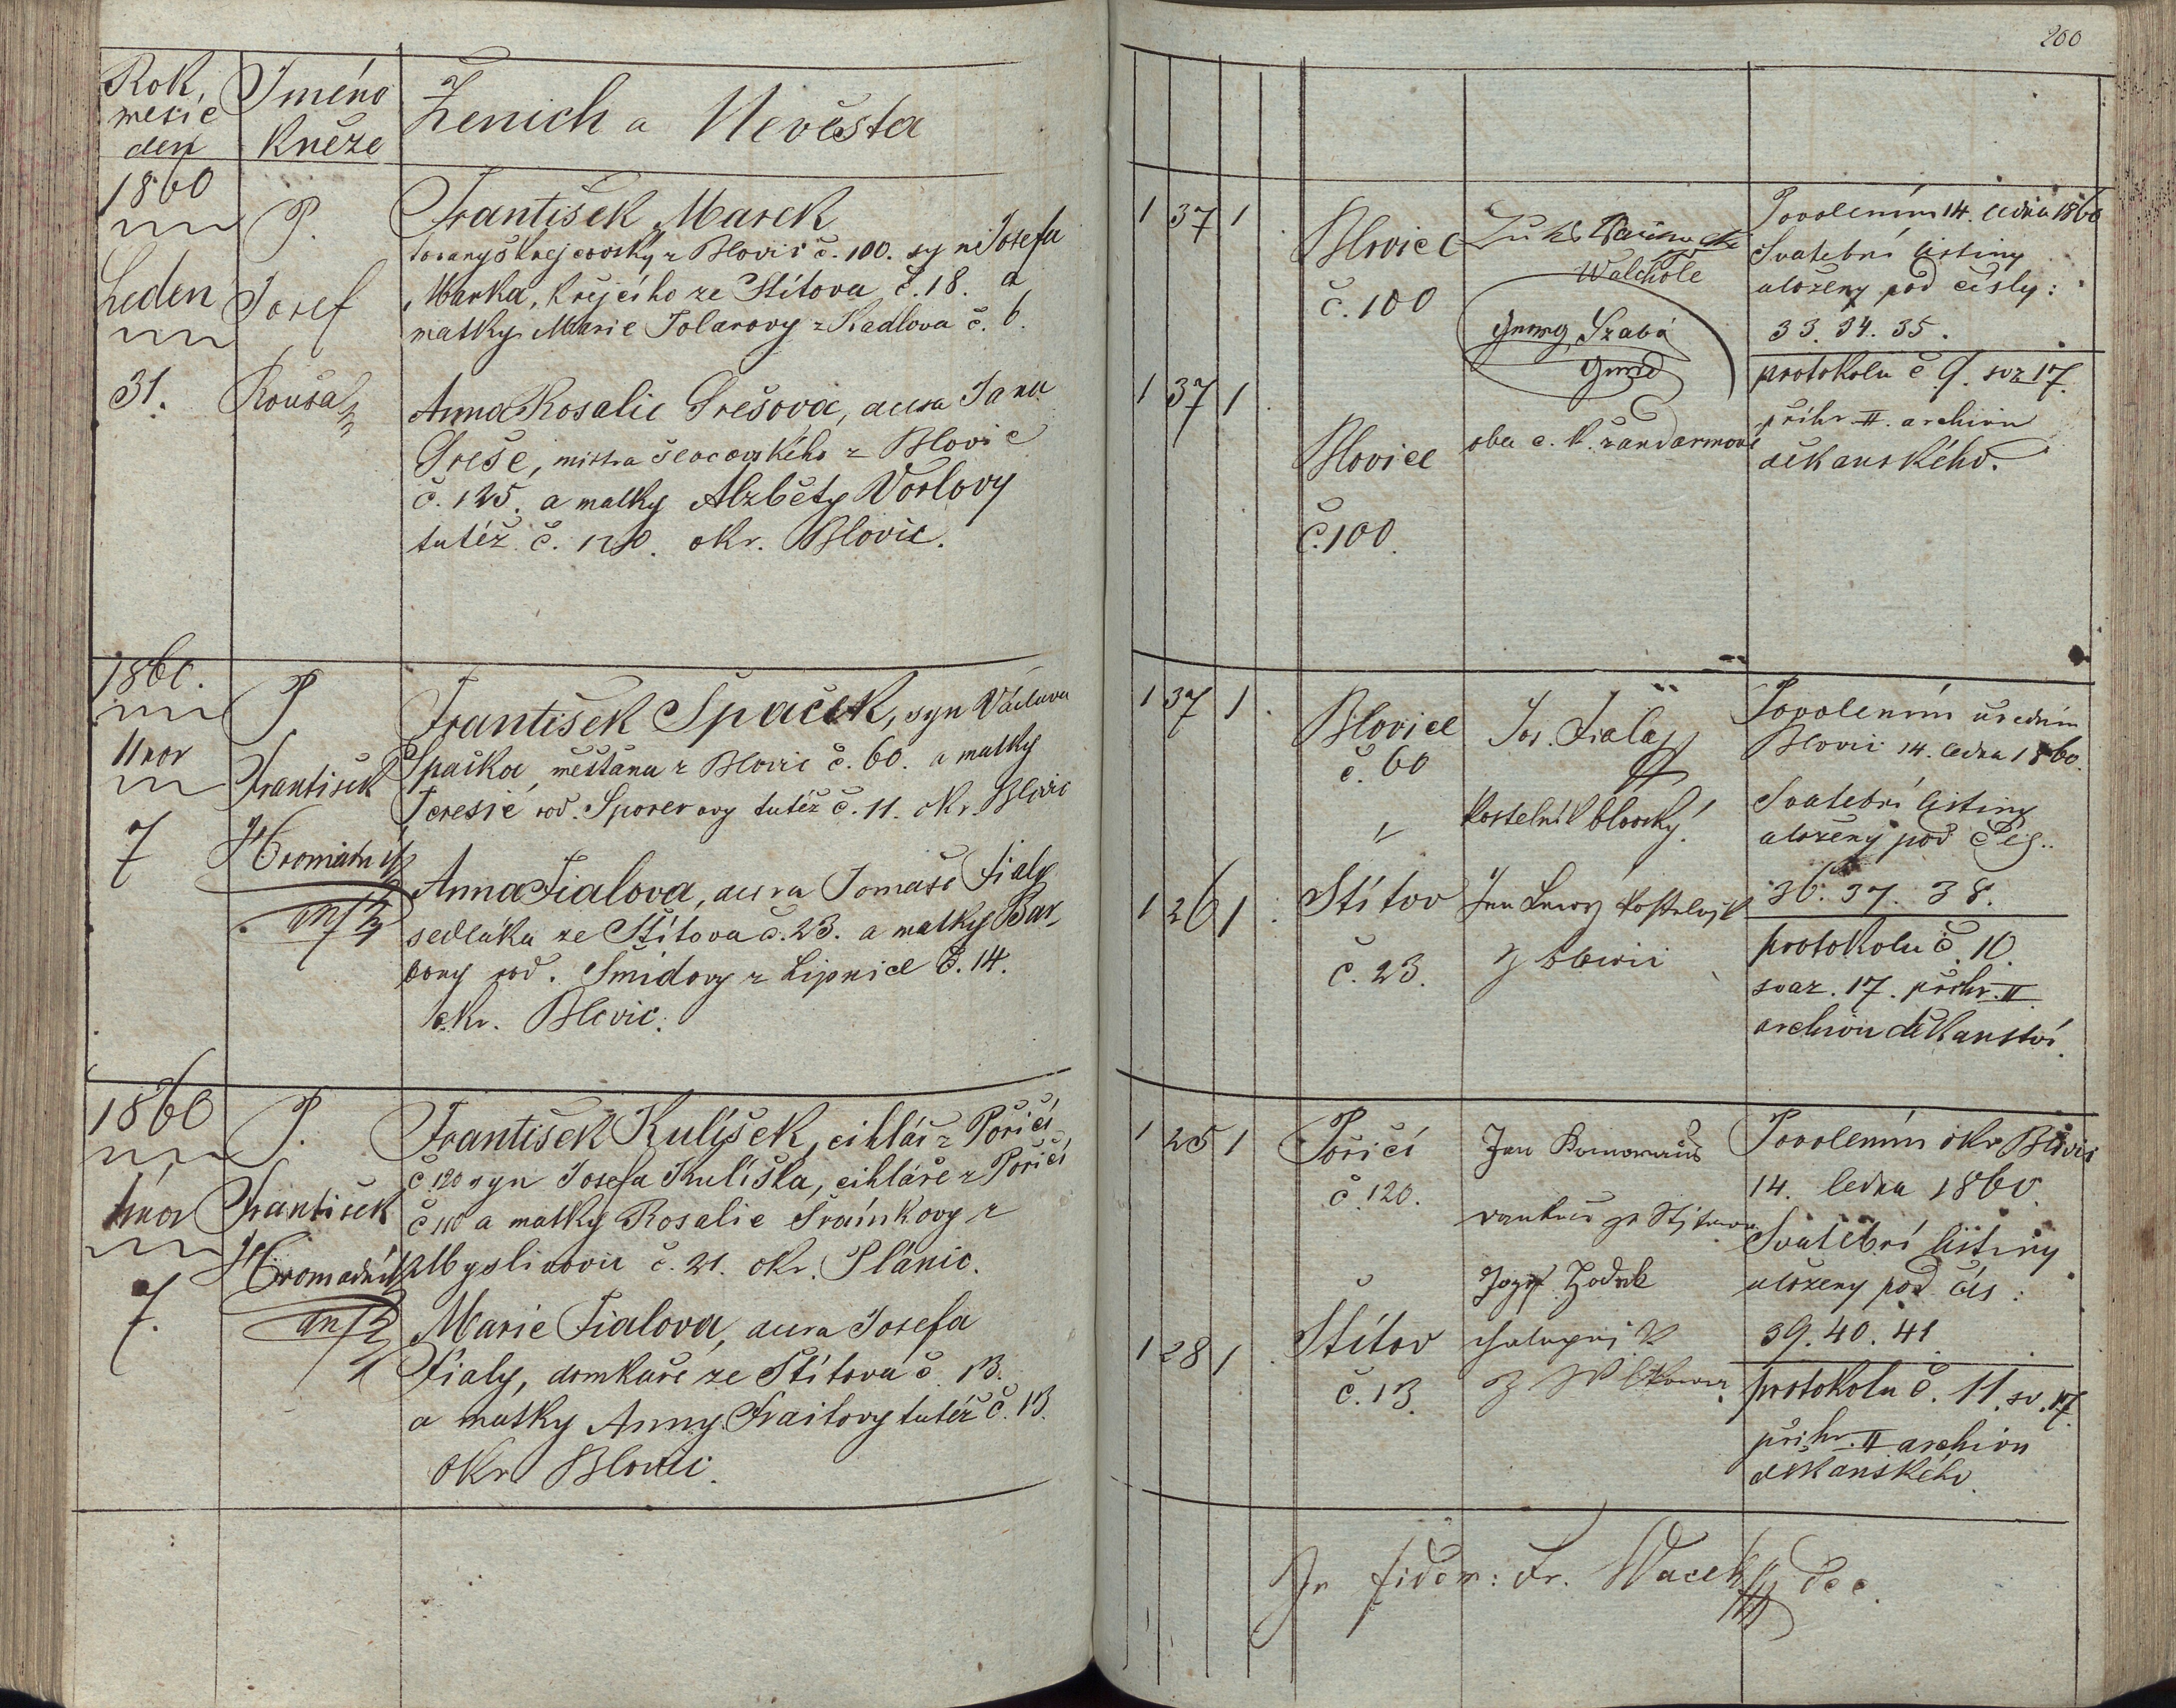 200
Rok, měsíc den
Jméno kněze
Ženich a Nevěsta
1860
Leden
31.
P. Josef Kouša
František Marek
tovaryš krejčovský z Blovic č. 100. syn Josefa
Marka, krejčího ze Štítova č. 18. a
matky Marie Tolarovy z Kadlova č. 6.
Anna Rosalie Grešova, dcera Jana
Greše, mistra ševcovského z Blovic
č. 125. a matky Alzběty Vorlovy
tutéž č. okr. Blovic.
1 37 1
1 37 1
Blovice
č. 100
Blovice
č. 100.
Walchole
Szabó
oba c. k. žandarmové
Povolením 14. ledna 1860
Svatební listiny
uloženy pod čísly:
33. 34. 35.
protokolu č 9. sv. 17.
přihr. II. archivu
děkanského.
1860.
Únor
7
P.
František
Hromádník
František Špaček, syn Václava
Špačka, měšťana z Blovic č. 60. a matky
Teresie rod. Sporerovy tutéž č. 11. okr. Blovic
Anna Fialova, dcera Tomáše Fialy
sedláka ze Štítova č. 23. a matky Bar
bory rod. Šmidovy z Lipnice č. 14.
okr. Blovic.
1 37 1
1 26 1
Blovice
č. 60
Štítov
č. 23.
Jos. Fiala
kostelník blovský.
Jan kostelník
z Blovic
Povolením úředním
Blovic 14. ledna 1860.
Svatební listiny
uloženy pod čís..
36. 37. 38.
protokolu č. 10.
svaz. 17. přihr. II
archivu děkanství.
1860
únor
7.
P.
František
Hromádník
František Kulíšek, cihlář z Poříčí
č 120 syn Josefa Kulíška, cihláře z Poříčí
č 110 a matky Rosalie Šraínkovy z
Myslivovic č. 21. okr. Plánic.
Marie Fialova, dcera Josefa
Fialy, domkaře ze Štítova č. 13.
a matky Anny Frailovy tutéž č. 13.
okr. Blovic.
1 25 1
1 28 1
Poříčí
č. 120.
Štítov
č. 13.
Jan
Jozef
chalupník
z
Povolením okr. Blovic
14. ledna 1860
Svatební listiny
uloženy pod čís:
39. 40. 41
protokolu č. 11. sv. 17.
přihr. II archivu
děkanského.
In fidem: Fr. Wacek dec.